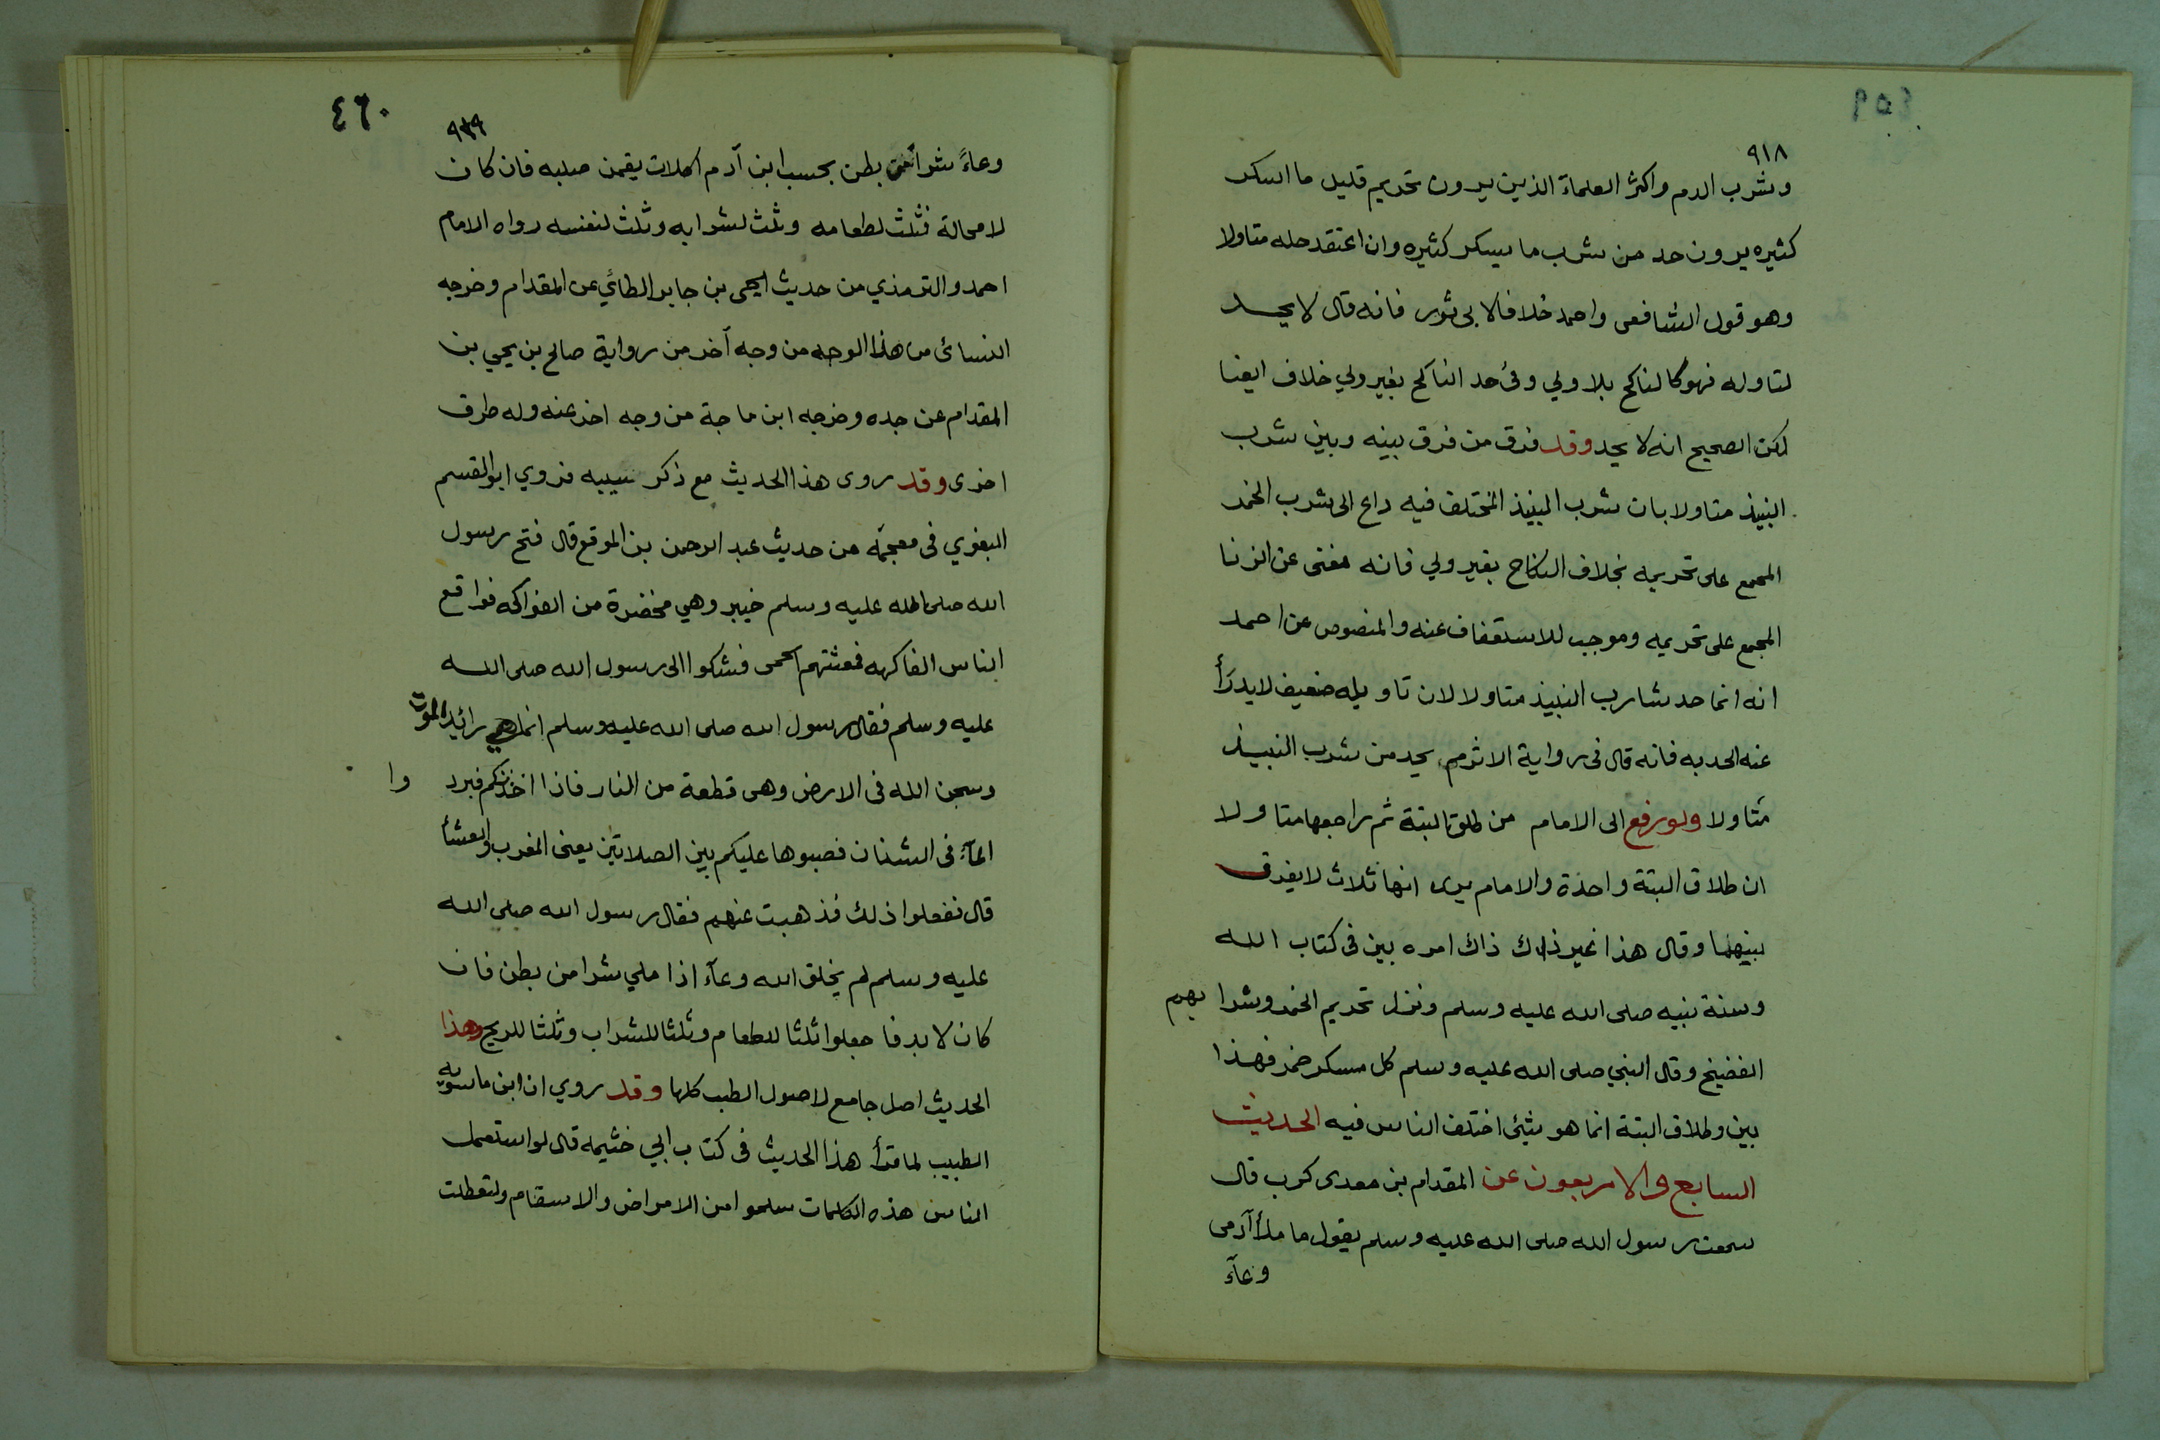 ٤٥٩
٩١٨
وشرب الدم واكثر العلماء الذين يرون تحريم قليل ما اسكر
كثيره يرون حد من شرب ما يسكر كثيره وان اعتقد حله متاولا
وهو قول الشافعى واحمد خلافا لابى ثور فانه قال لا يحد
لتاوله فهو كالناكح بلا ولي وفى حد الناكح بغير ولي خلاف ايضا
لكن الصحيح انه لا يحد وقد فرق من فرق بينه وبين شرب
النبيذ متاولا بان شرب النبيذ المختلف فيه داع الى شرب الخمر
المجمع على تحريمه بخلاف النكاح بغير ولي فانه مغنى عن الزنا
المجمع على تحريمه وموجب للاستعفاف عنه والمنصوص عن احمد
انه انما حد شارب النبيذ متاولا لان تاويله ضعيف لا يدرأ
عنه الحد به فانه قال فى رواية الاثرم يحد من شرب النبيذ
متاولا ولو رفع الى الامام من طلق البتة ثم راجعها متاولا
ان طلاق البتة واحدة والامام يرى انها ثلاث لا يفرق
بينهما وقال هذا غير ذاك ذاك امره بين فى كتاب الله
وسنة نبيه صلى الله عليه وسلم ونزل تحريم الخمر وشرابهم
الفضيخ وقال النبي صلى الله عليه وسلم كل مسكر خمر فهذا
بين وطلاق البتة انما هو شئ اختلف الناس فيه الحديث
السابع والاربعون عن المقدام بن معدى كرب قال
سمعت رسول الله صلى الله عليه وسلم يقول ما ملأ آدمى
وعآء
٤٦٠
٩١٩
وعاءً شرا من بطن بحسب ابن آدم اكلات يقمن صلبه فان كان
لا محالة فثلث لطعامه وثلث لشرابه وثلث لنفسه رواه الامام
احمد والترمذي من حديث يحيى بن جابر الطائي عن المقدام وخرجه
النسائ من هذا الوجه من وجه آخر من رواية صالح بن يحيي بن
المقدام عن جده وخرجه ابن ماجة من وجه اخر عنه وله طرق
اخرى وقد روى هذا الحديث مع ذكر سببه فروي ابو القسم
البغوي فى معجمه من حديث عبد الرحمن بن المرقع قال فتح رسول
الله صلى الله عليه وسلم خيبر وهي مخضرة من الفواكه فواقع
الناس الفاكهه فمغثتهم الحمى فشكوا الى رسول الله صلى الله
عليه وسلم فقال رسول الله صلى الله عليه وسلم انما هي رائد الموت
وسجن الله فى الارض وهى قطعة من النار فاذا اخذتكم فبردوا
المآء فى الشنان فصبوها عليكم بين الصلاتين يعنى المغرب والعشأ
قال ففعلوا ذلك فذهبت عنهم فقال رسول الله صلى الله
عليه وسلم لم يخلق الله وعآء اذا ملي شرا من بطن فان
كان لا بد فاجعلوا ثلثا للطعام وثلثا للشراب وثلثا للريح وهذا
الحديث اصل جامع لاصول الطب كلها وقد روي ان ابن ماسويه
الطبيب لما قرأ هذا الحديث فى كتاب ابي خثيمه قال لو استعمل
الناس هذه الكلمات سلموا من الامراض والاسقام ولتعطلت